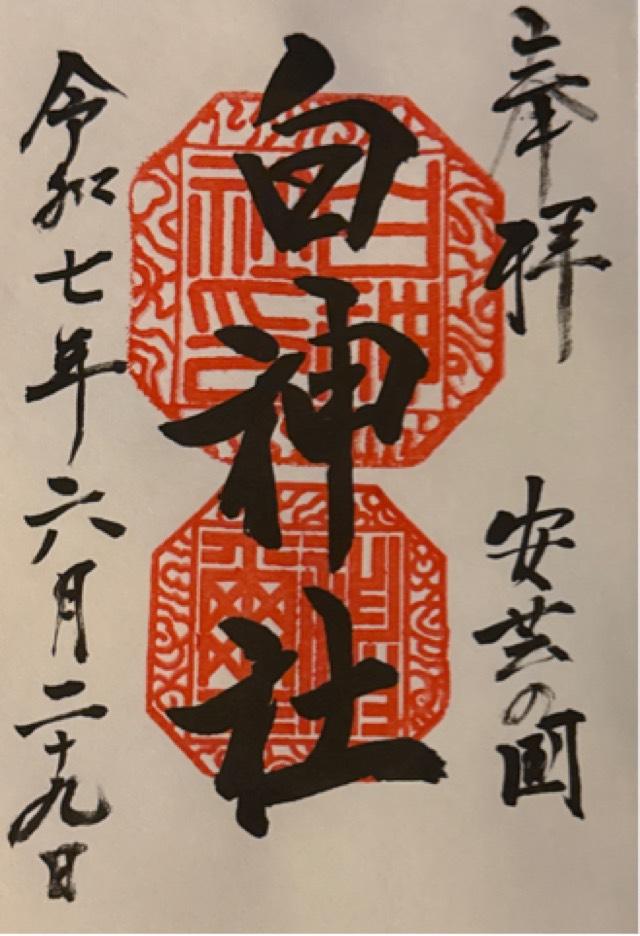 奉拝
安芸の国
白神社
令和七年六月二十九日